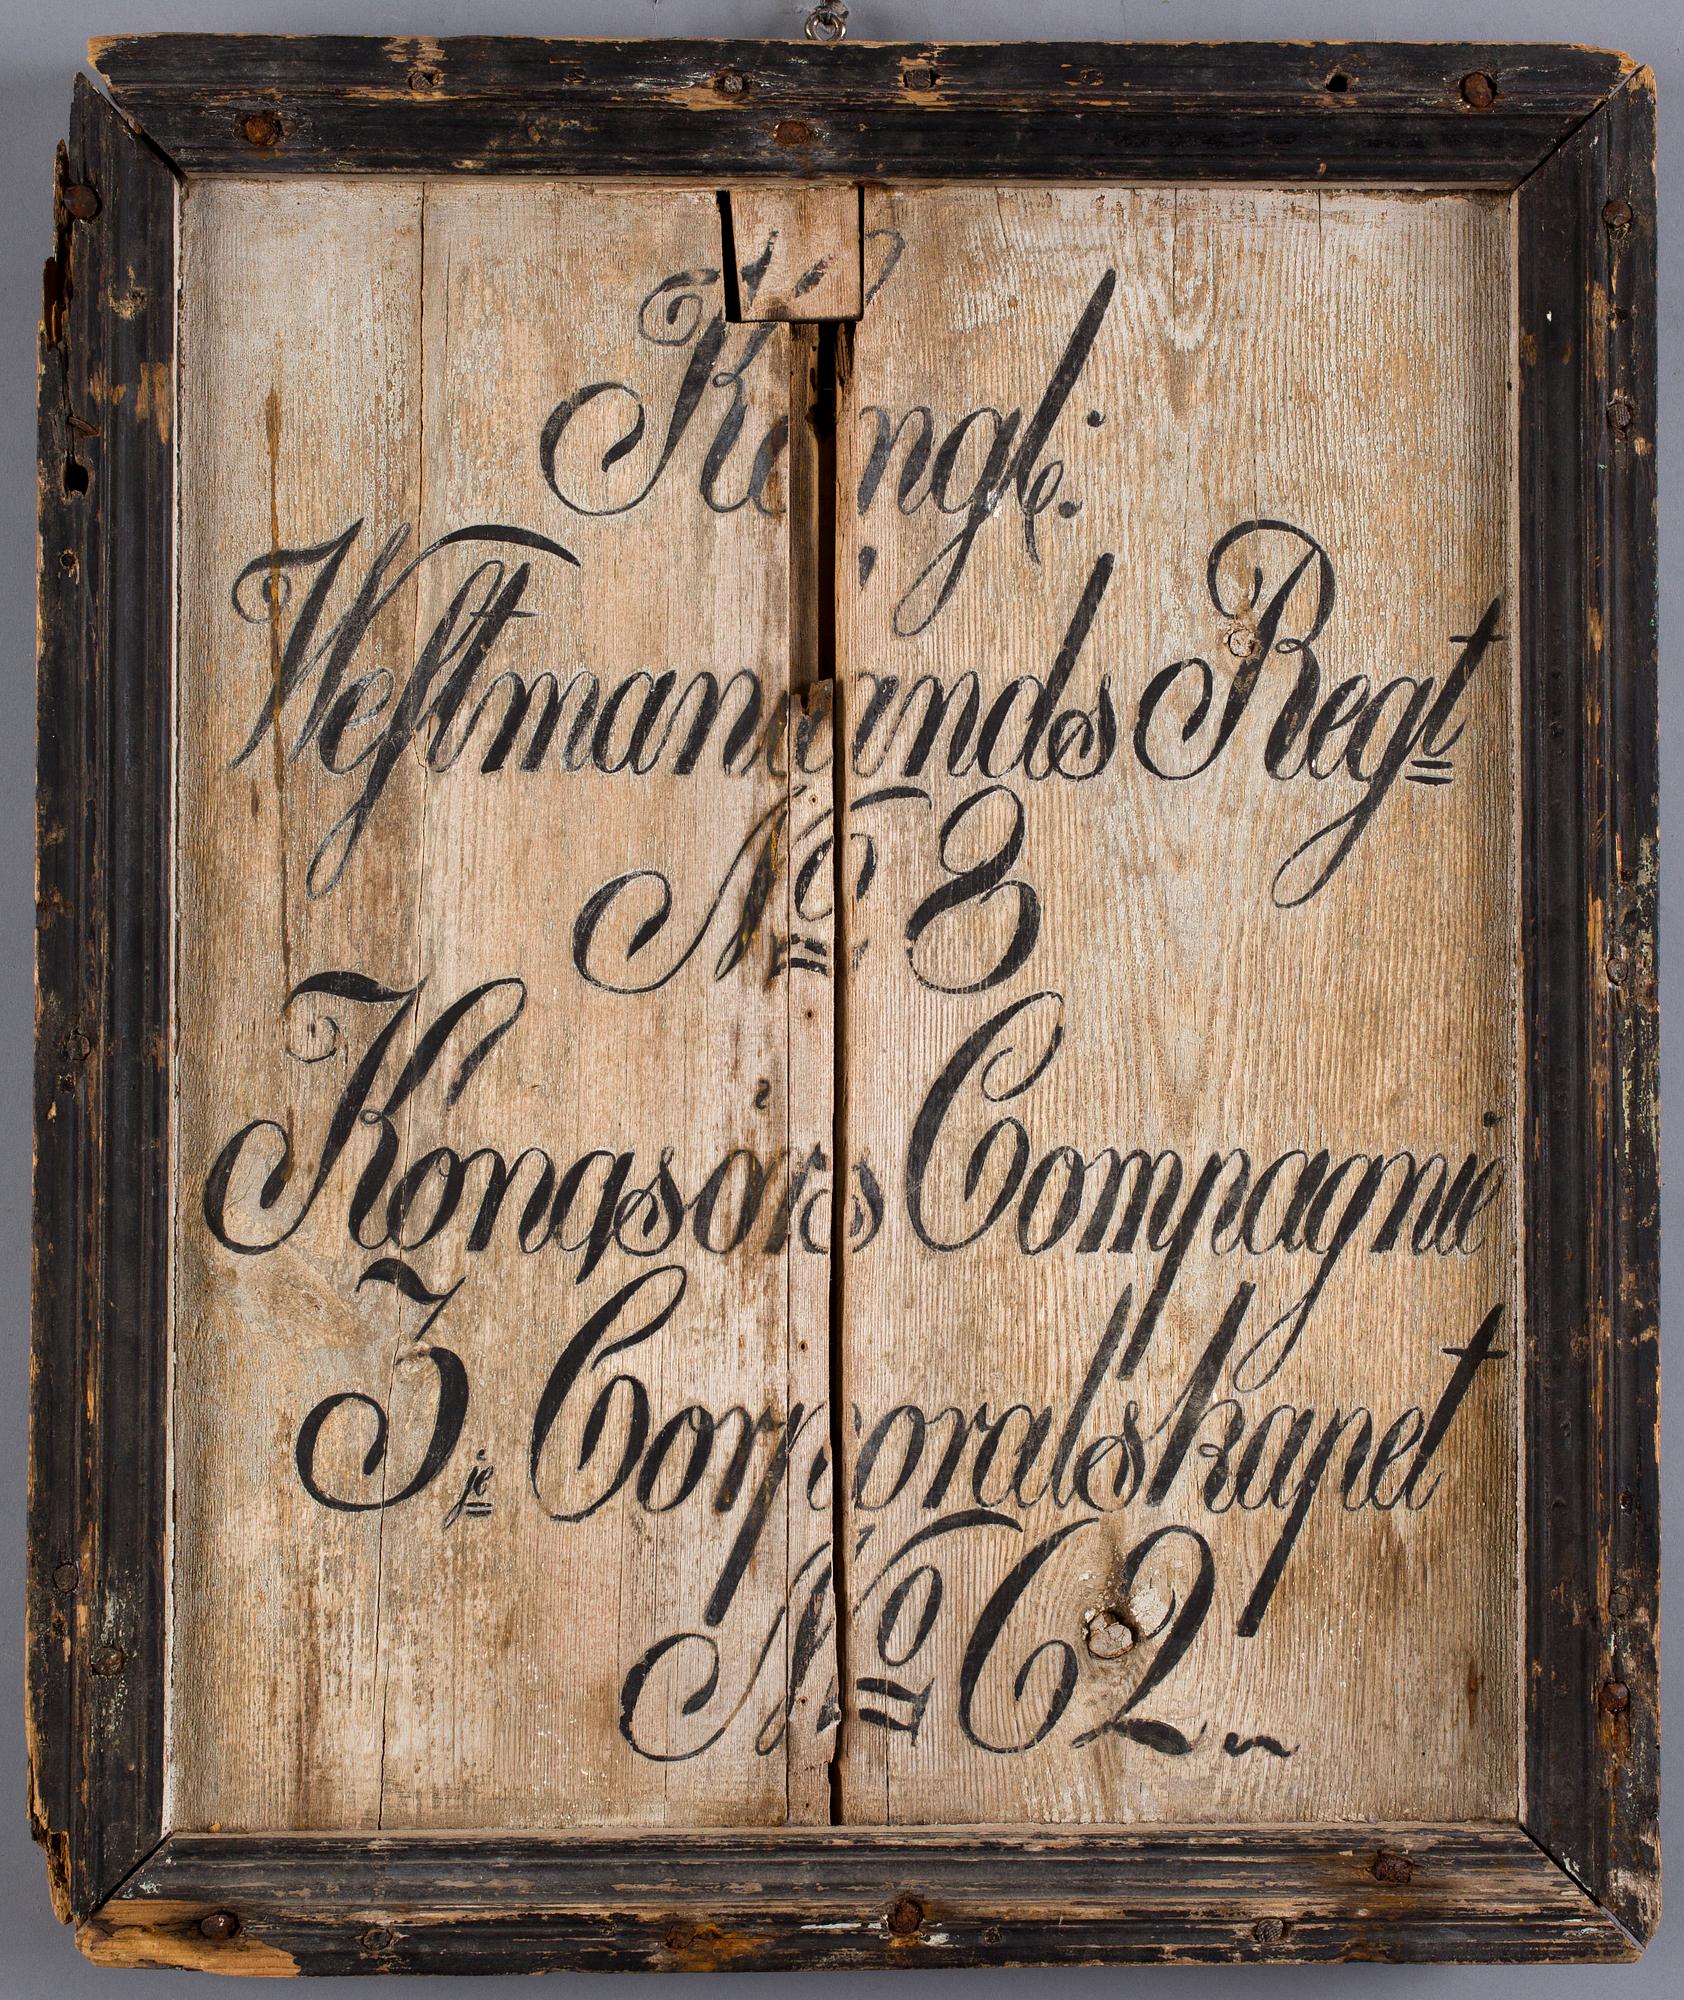 Kongl:
Westmanlands Regt
No 8
Kongsörs Compagnie
3je Corporalskapet
No 62